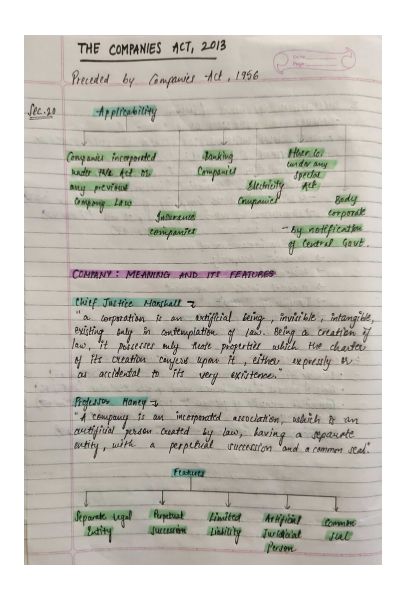 THE COMPANIES ACT, 2013
Date
Page
Preceded by Companies Act, 1956
Sec. 20
Applicability
Companies incorporated
under this Act or
any previous
Company Law
Insurance
companies
Banking
Companies
Electricity
Companies
Other Co.
under any
special
Act
Body
corporate
- By notification
of Central Govt.
COMPANY: MEANING AND ITS FEATURES
Chief Justice Marshall
"a corporation is an artificial being, invisible, intangible,
existing only in contemplation of law. Being a creation of
law, it possesses only those properties which the charter
of its creation confers upon it, either expressly or
as accidental to its very existence."
Professor Haney
"A company is an incorporated association, which is an
artificial person created by law, having a separate
entity, with a perpetual succession and a common seal".
Features
Separate Legal
Entity
Perpetual
Succession
Limited
Liability
Artificial
Juridicial
Person
Common
seal